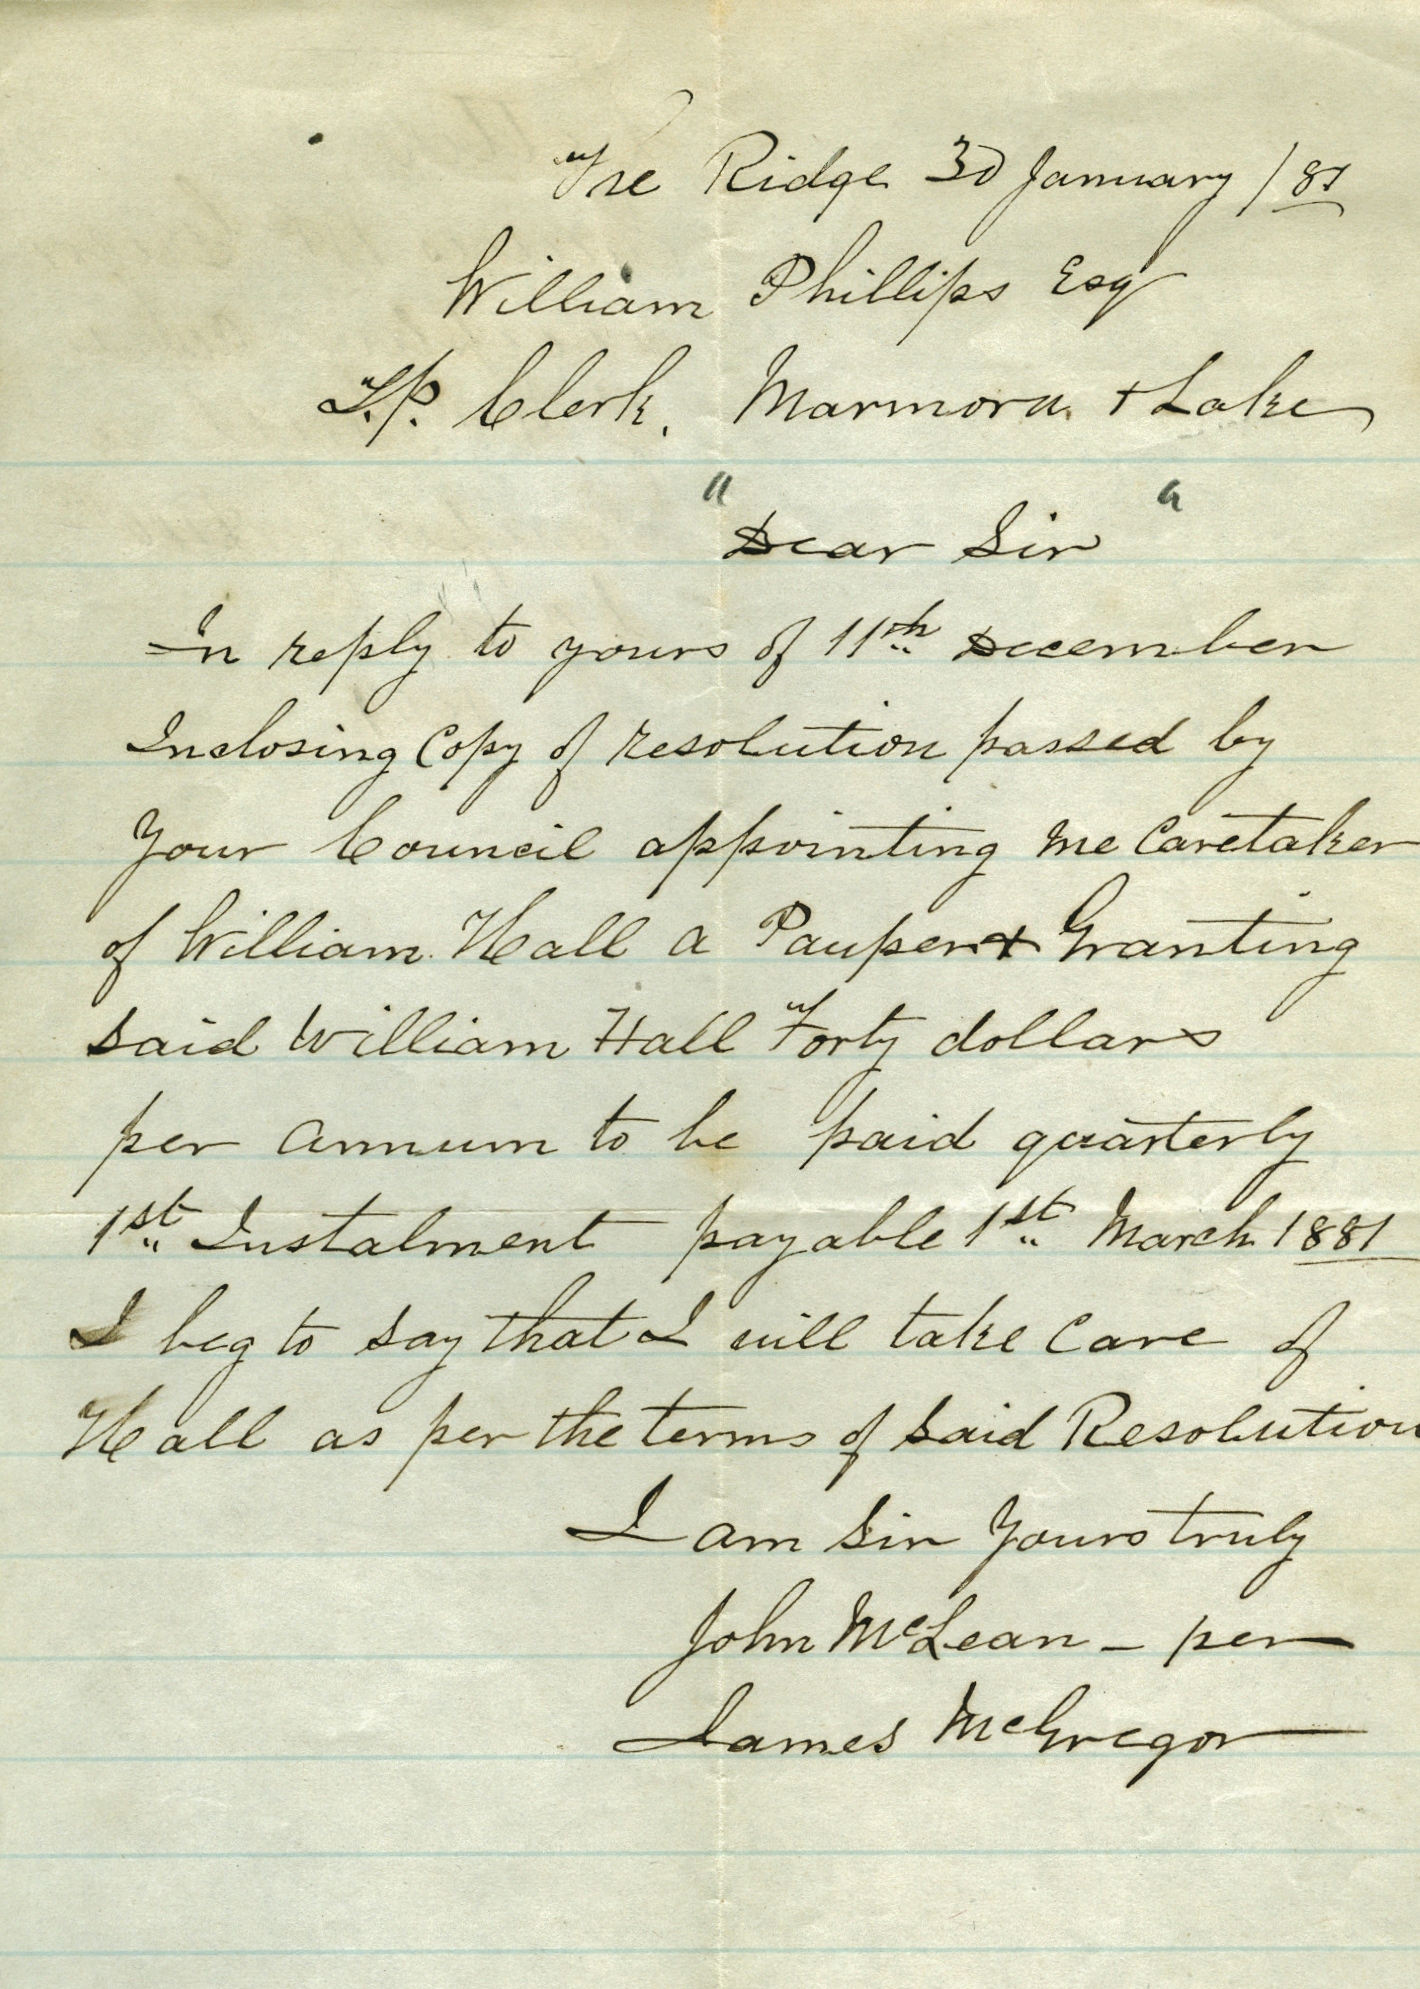 The Ridge 30 January /81
William Phillips Esq
T.P. Clerk. Marmora + Lake
" "
Dear Sir
In reply to yours of 11th December
Inclosing Copy of resolution passed by
Your Council appointing me Caretaker
of William Hall a Pauper + Granting
said William Hall Forty dollars
per annum to be paid quarterly
1st Instalment payable 1st March 1881
I beg to say that I will take Care of
Hall as per the terms of said Resolution
I am Sir Yours truly
John McLean – per
James McGregor